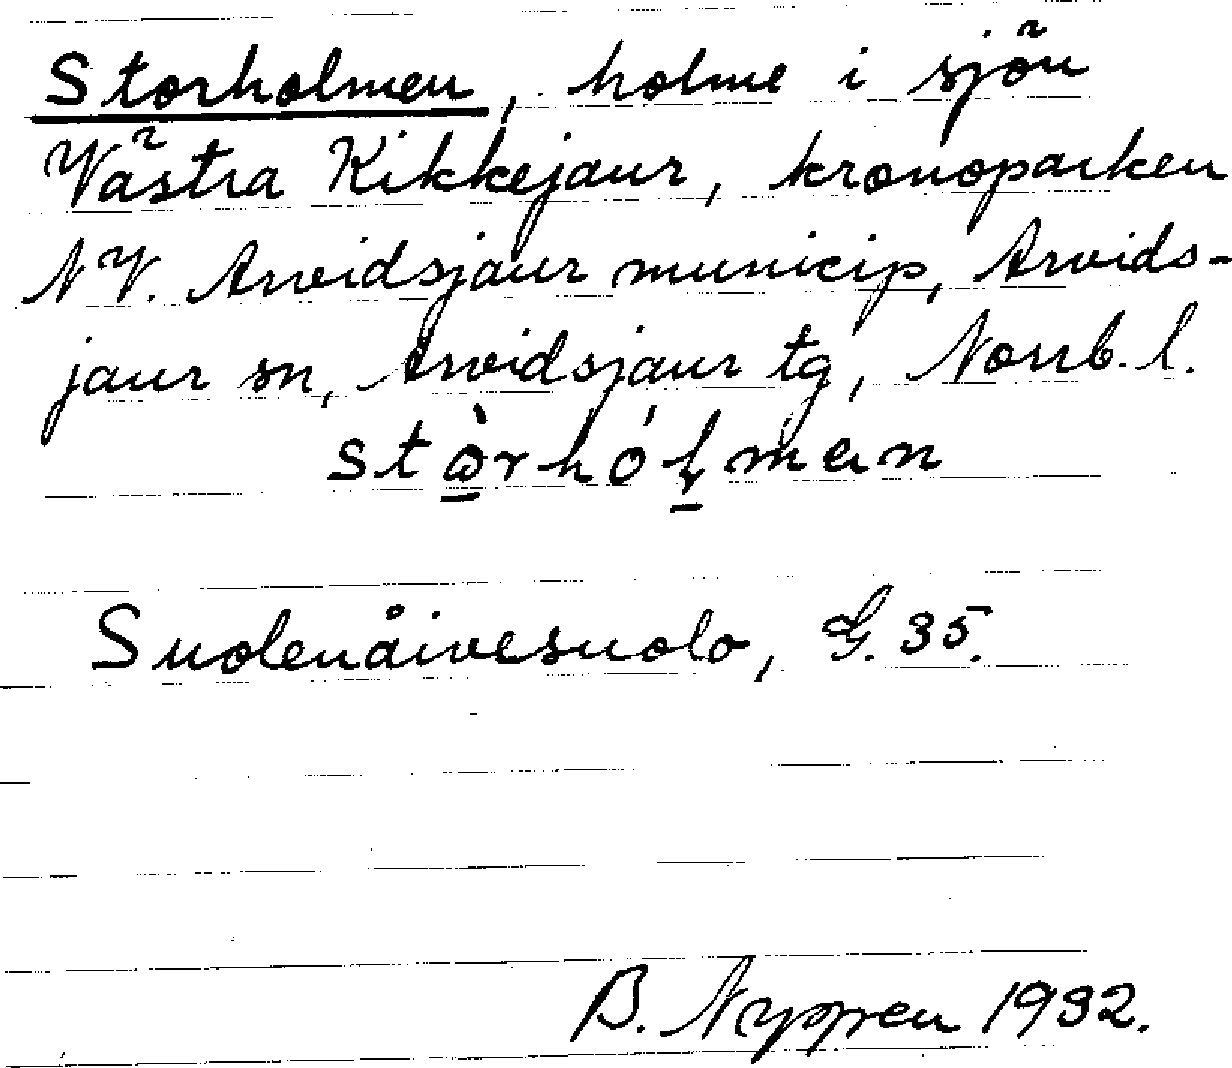 Storholmen, holme i sjön
Västra Kikkejaur, kronoparken
NV. Arvidsjaur municip, Arvids-
jaur sn, Arvidsjaur tg, Norrb. l.
Suolenåivesuolo, G. 35.
B. Nyppen 1932.